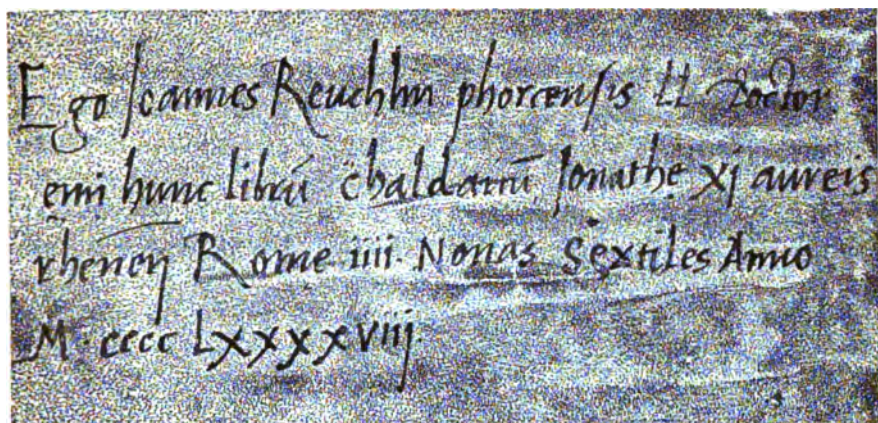 Ego Ioannes Reuchlin phorcensis LL Doctor.
emi hunc librū chaldaicū Ionathe xj aureis
rhenen̄ Rome iiii. Nonas Sextiles Anno
M. cccc Lxxxxviij.